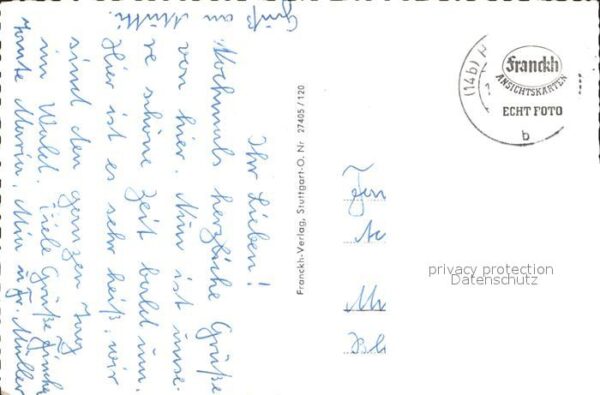 Ihr Lieben!
Nochmals herzliche Grüße
von hier. Nun ist unse-
re schöne Zeit bald um.
Hier ist es sehr heiß, wir
sind den ganzen Tag
im Wald. Viele Grüße
Tante Maria, Mia u. Fr. Müller
Gruß
an Mutti.
Franckh-Verlag, Stuttgart-O. Nr 27405/120
(14b)
Franckh
ANSICHTSKARTEN
ECHT FOTO
b
privacy protection
Datenschutz